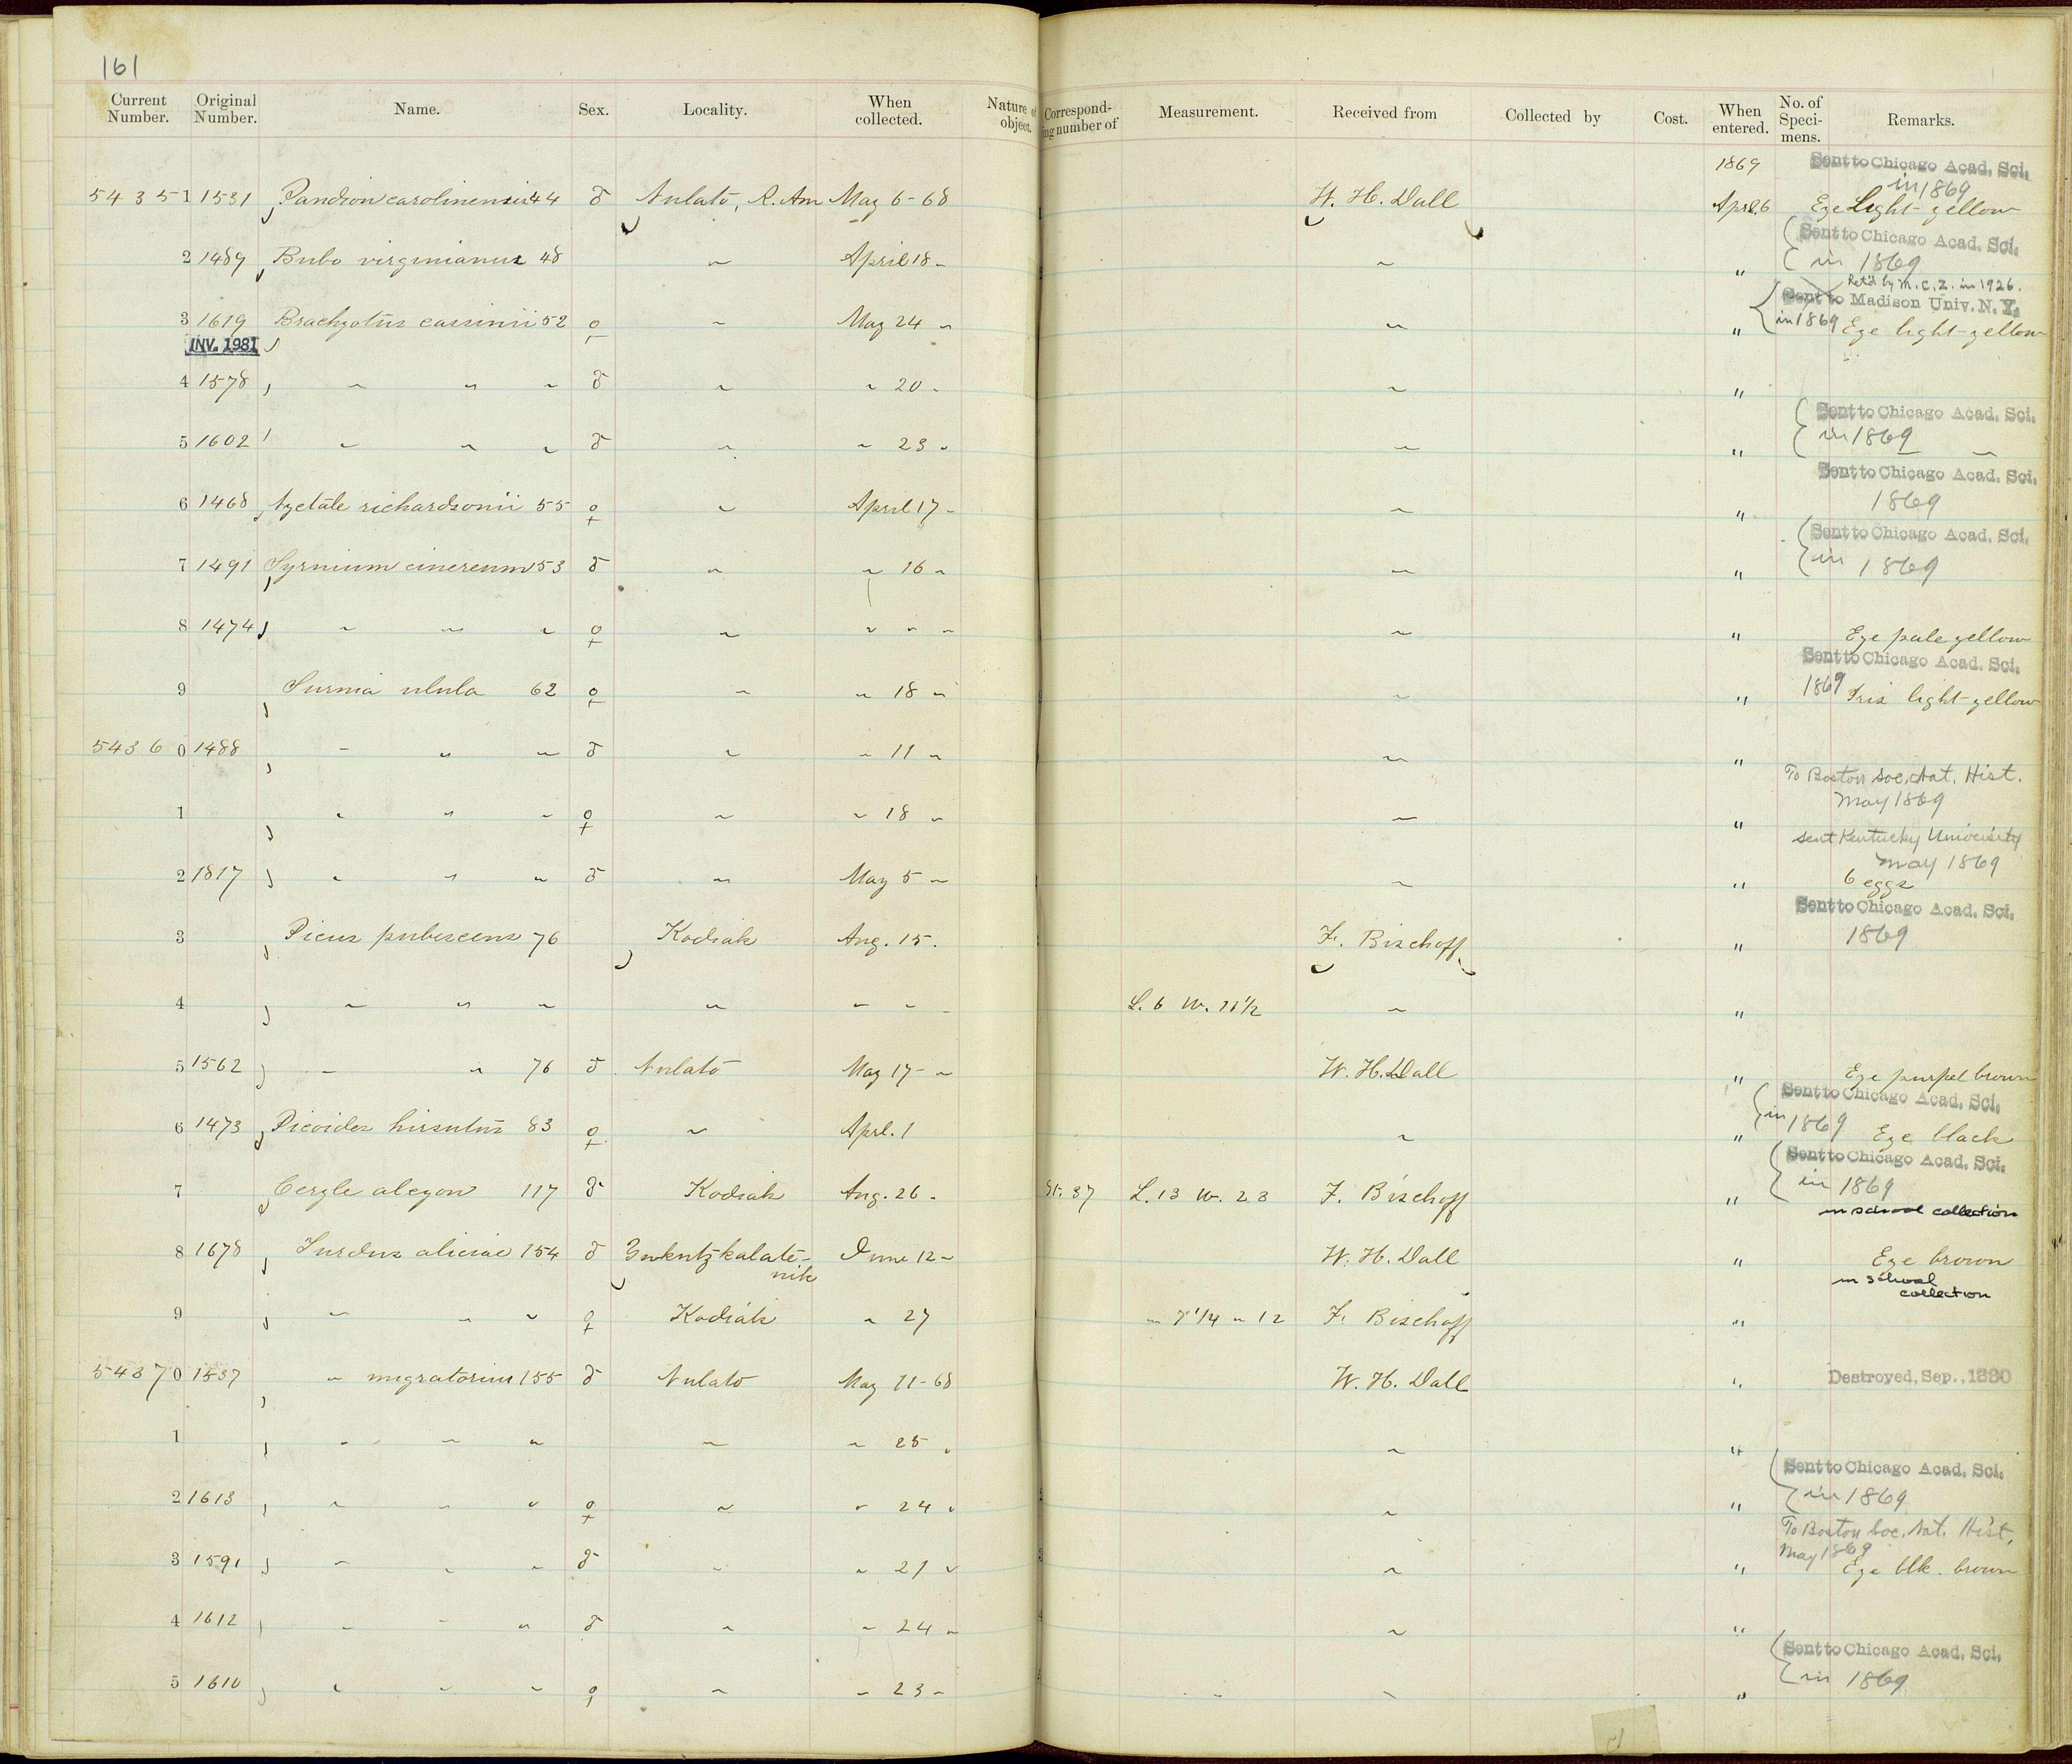 161
Current Number. Original Number. Name. Sex. Locality. When collected. Nature of object. Correspond-ing number of Measurement. Received from Collected by Cost. When entered. No. of Speci-mens. Remarks.
1869 Sent to Chicago Acad. Sci.
in 1869
54351 1531 Pandion carolinensis 44 ♂ Nulato, R. Am May 6-68 W. H. Dall Apr. 6 Eye Light yellow
Sent to Chicago Acad. Sci.
2 1489 Bubo virginianus 48 " April 18 " " " in 1869
Ret'd by M.C.Z. in 1926.
Sent to Madison Univ. N.Y.
3 1619 Brachyotus cassinii 52 ♀ " May 24 " " " in 1869 Eye light-yellow
INV. 1981
4 1578 " " " ♂ " " 20 " " "
Sent to Chicago Acad. Sci.
5 1602 " " " ♂ " " 23 " " " in 1869 " "
Sent to Chicago Acad. Sci.
6 1468 Nyctale richardsonii 55 ♀ " April 17 " " " 1869
Sent to Chicago Acad. Sci.
7 1491 Syrnium cinereum 53 ♂ " " 16 " " " in 1869
8 1474 " " " ♀ " " " " " " Eye pale yellow
Sent to Chicago Acad. Sci.
9 Surnia ulula 62 ♀ " " 18 " " " 1869 Iris light-yellow
54360 1488 " " " ♂ " " 11 " " "
To Boston Soc. Nat. Hist.
May 1869
1 " " " ♀ " " 18 " " "
Sent Kentucky University
May 1869
2 1817 " " " ♂ " May 5 " " " 6 eggs
Sent to Chicago Acad. Sci.
3 Picus pubescens 76 Kodiak Aug. 15. F. Bischoff " 1869
4 " " " " " " " L. 6 W. 11 1/2 " "
5 1562 " " 76 ♂ Nulato May 17 " W. H. Dall " Eye purpel brown
Sent to Chicago Acad. Sci.
6 1473 Picoides hirsutus 83 ♀ " Apr. 1 " " in 1869 Eye black
Sent to Chicago Acad. Sci.
7 Ceryle alcyon 117 ♂ Kodiak Aug. 26 " St. 37 L. 13 W. 23 F. Bischoff " in 1869
in school collection
8 1678 Turdus aliciae 154 ♂ Zukutzkalate-
nik June 12 " W. H. Dall " Eye brown
in school
collection
9 " " " ♀ Kodiak " 27 " 7 1/4 " 12 F. Bischoff "
54370 1537 " migratorius 155 ♂ Nulato May 11-68 W. H. Dall " Destroyed, Sep., 1880
1 " " " " " 25 " " "
Sent to Chicago Acad. Sci.
2 1613 " " " ♀ " " 24 " " " in 1869
To Boston Soc. Nat. Hist,
May 1869
3 1591 " " " ♂ " " 21 " " " Eye blk. brown
4 1612 " " " ♂ " " 24 " " "
Sent to Chicago Acad. Sci.
5 1610 " " " ♀ " " 23 " " " " in 1869